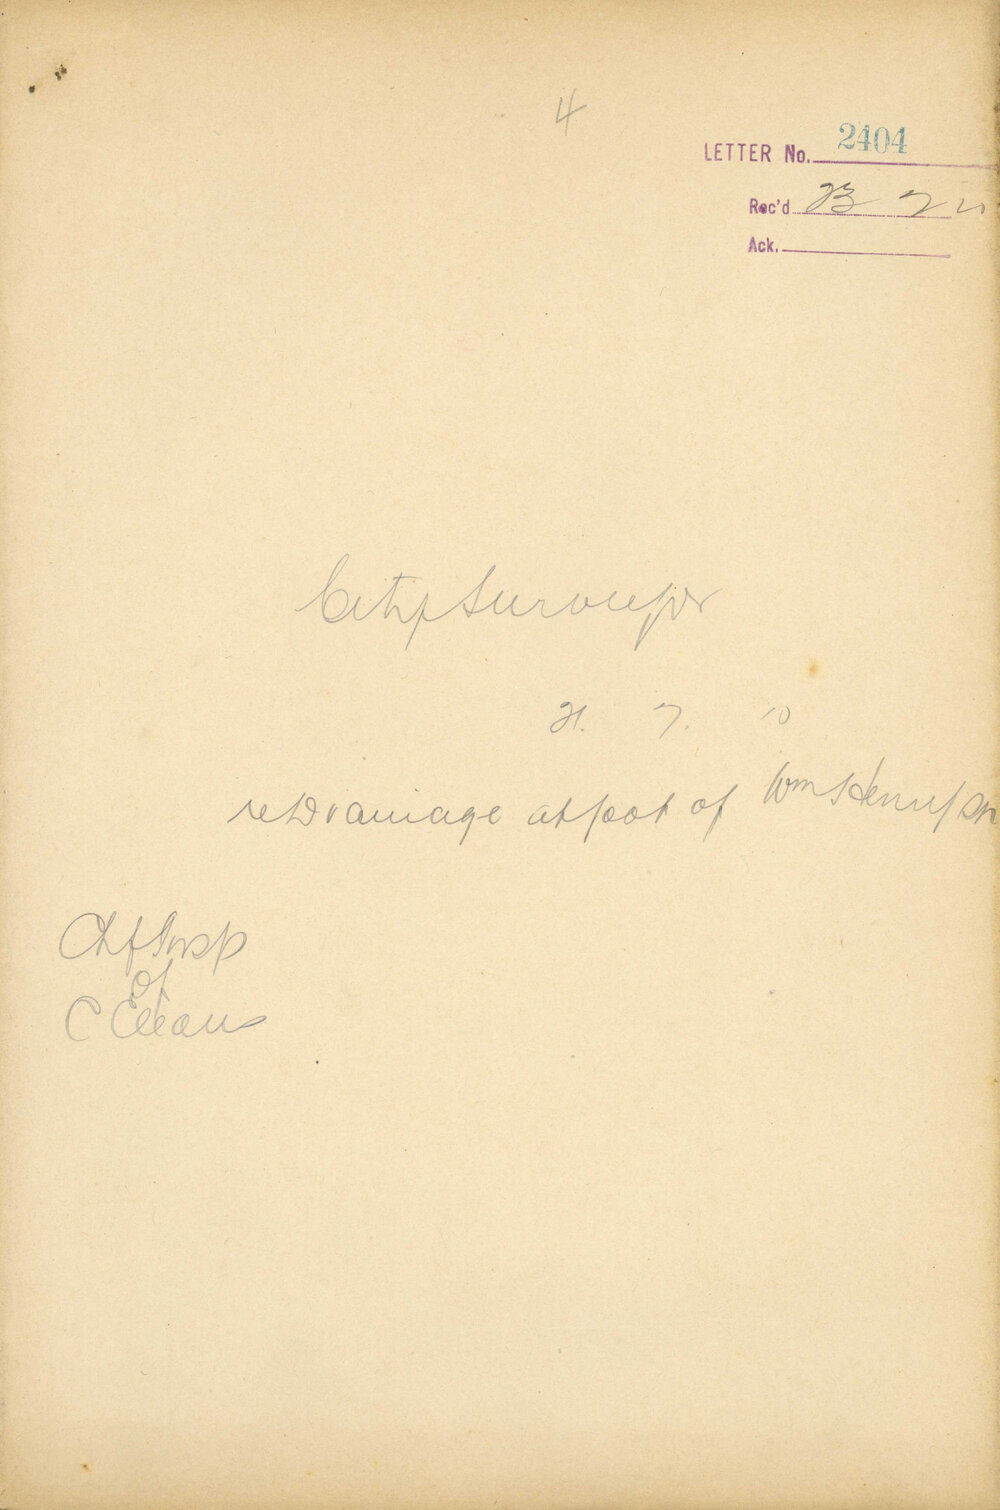 4
LETTER No. 2404
Rec'd 23 7 10
Ack.
City Surveyor
21. 7. 10
re Drainage at foot of Wm Henry St
Chf Insp
of
C Eleans